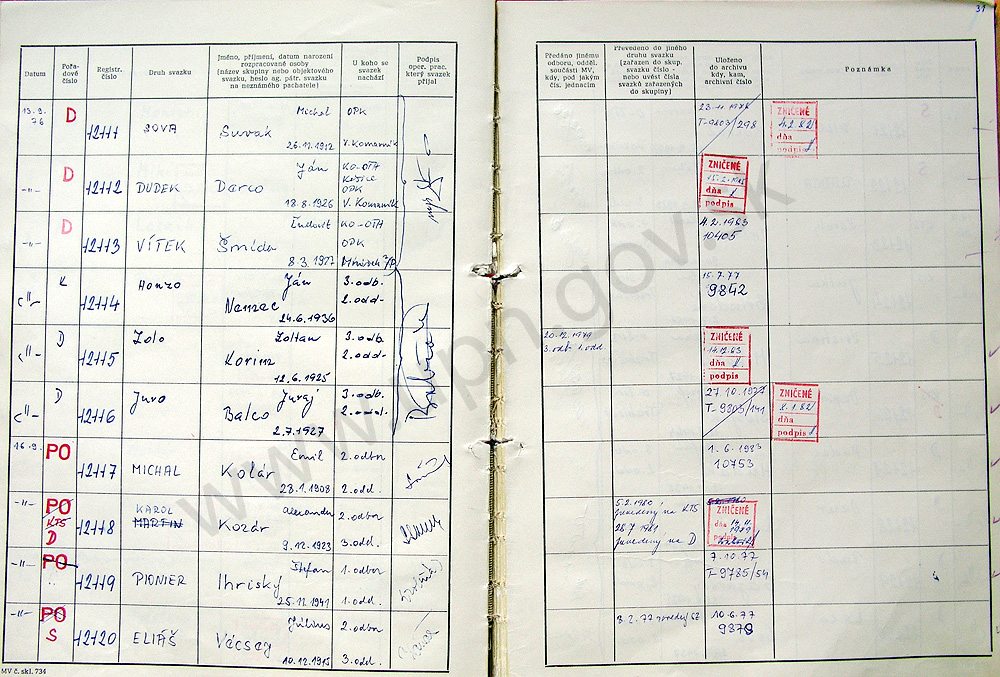 31
Datum
Pořadové číslo
Registr. číslo
Druh svazku
Jméno, příjmení, datum narození rozpracované osoby (název skupiny nebo objektového svazku, heslo ag. pátr. svazku na neznámého pachatele)
U koho se svazek nachází
Podpis oper. prac. který svazek přijal
Předáno jinému odboru, odděl. součásti MV, kdy, pod jakým čís. jednacím
Převedeno do jiného druhu svazku (zařazen do skup. svazku číslo - nebo uvést čísla svazků zařazených do skupiny)
Uloženo do archivu kdy, kam, archivní číslo
Poznámka
13.9.76 D 12111 SOVA Michal Suvák 26.11.1912 OPK V. Komarník
T-9803/298
ZNIČENÉ 4.2.82 dňa podpis
-"- D 12112 DUDEK Ján Darco 18.8.1926 KO-OTH Košice OPK V. Komarník
ZNIČENÉ dňa podpis
-"- D 12113 VÍTEK Ľudovít Šmída 8.3.1927 KO-OTH OPK
4.2.1983 10405
-"- K 12114 Honzo Ján Nemzec 24.6.1936 3. odb. 2. odd.
15.7.77 9842
-"- D 12115 Zolo Zoltan Korinz 12.6.1925 3. odb. 2. odd.
20.12.1979 3. odb. 1. odd.
ZNIČENÉ 14.12.83 dňa podpis
-"- D 12116 Juro Juraj Balco 2.7.1927 3. odb. 2. odd.
27.10.1977 T-9805/141
ZNIČENÉ 8.1.82 dňa podpis
16.9. PO 12117 MICHAL Emil Kolár 28.1.1908 2. odbor 2. odd.
1.6.1983 10753
-"- PO KTS D 12118 KAROL MARTIN Alexander Kozár 9.12.1923 2. odbor 3. odd.
5.2.1980 zavedený na KTS 28.7.1981 zavedený na D
ZNIČENÉ dňa 14.11.1989 podpis
-"- PO 12119 PIONIER Štefan Ihriský 25.11.1941 1. odbor 1. odd.
7.10.77 T-9785/54
-"- PO S 12120 ELIÁŠ Július Vécsey 10.12.1915 2. odbor 3. odd.
10.6.77
MV č. skl. 734
www.upn.gov.sk